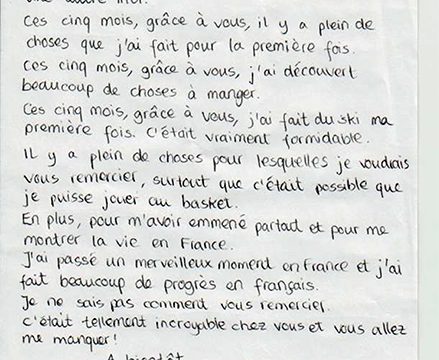 Ces cinq mois, grâce à vous, il y a plein de
choses que j'ai fait pour la première fois.
Ces cinq mois, grâce à vous, j'ai découvert
beaucoup de choses à manger.
Ces cinq mois, grâce à vous, j'ai fait du ski ma
première fois. C'était vraiment formidable.
Il y a plein de choses pour lesquelles je voudrais
vous remercier, surtout que c'était possible que
je puisse jouer au basket.
En plus, pour m'avoir emmené partout et pour me
montrer la vie en France.
J'ai passé un merveilleux moment en France et j'ai
fait beaucoup de progrès en français.
Je ne sais pas comment vous remercier.
C'était tellement incroyable chez vous et vous allez
me manquer!
A bientôt